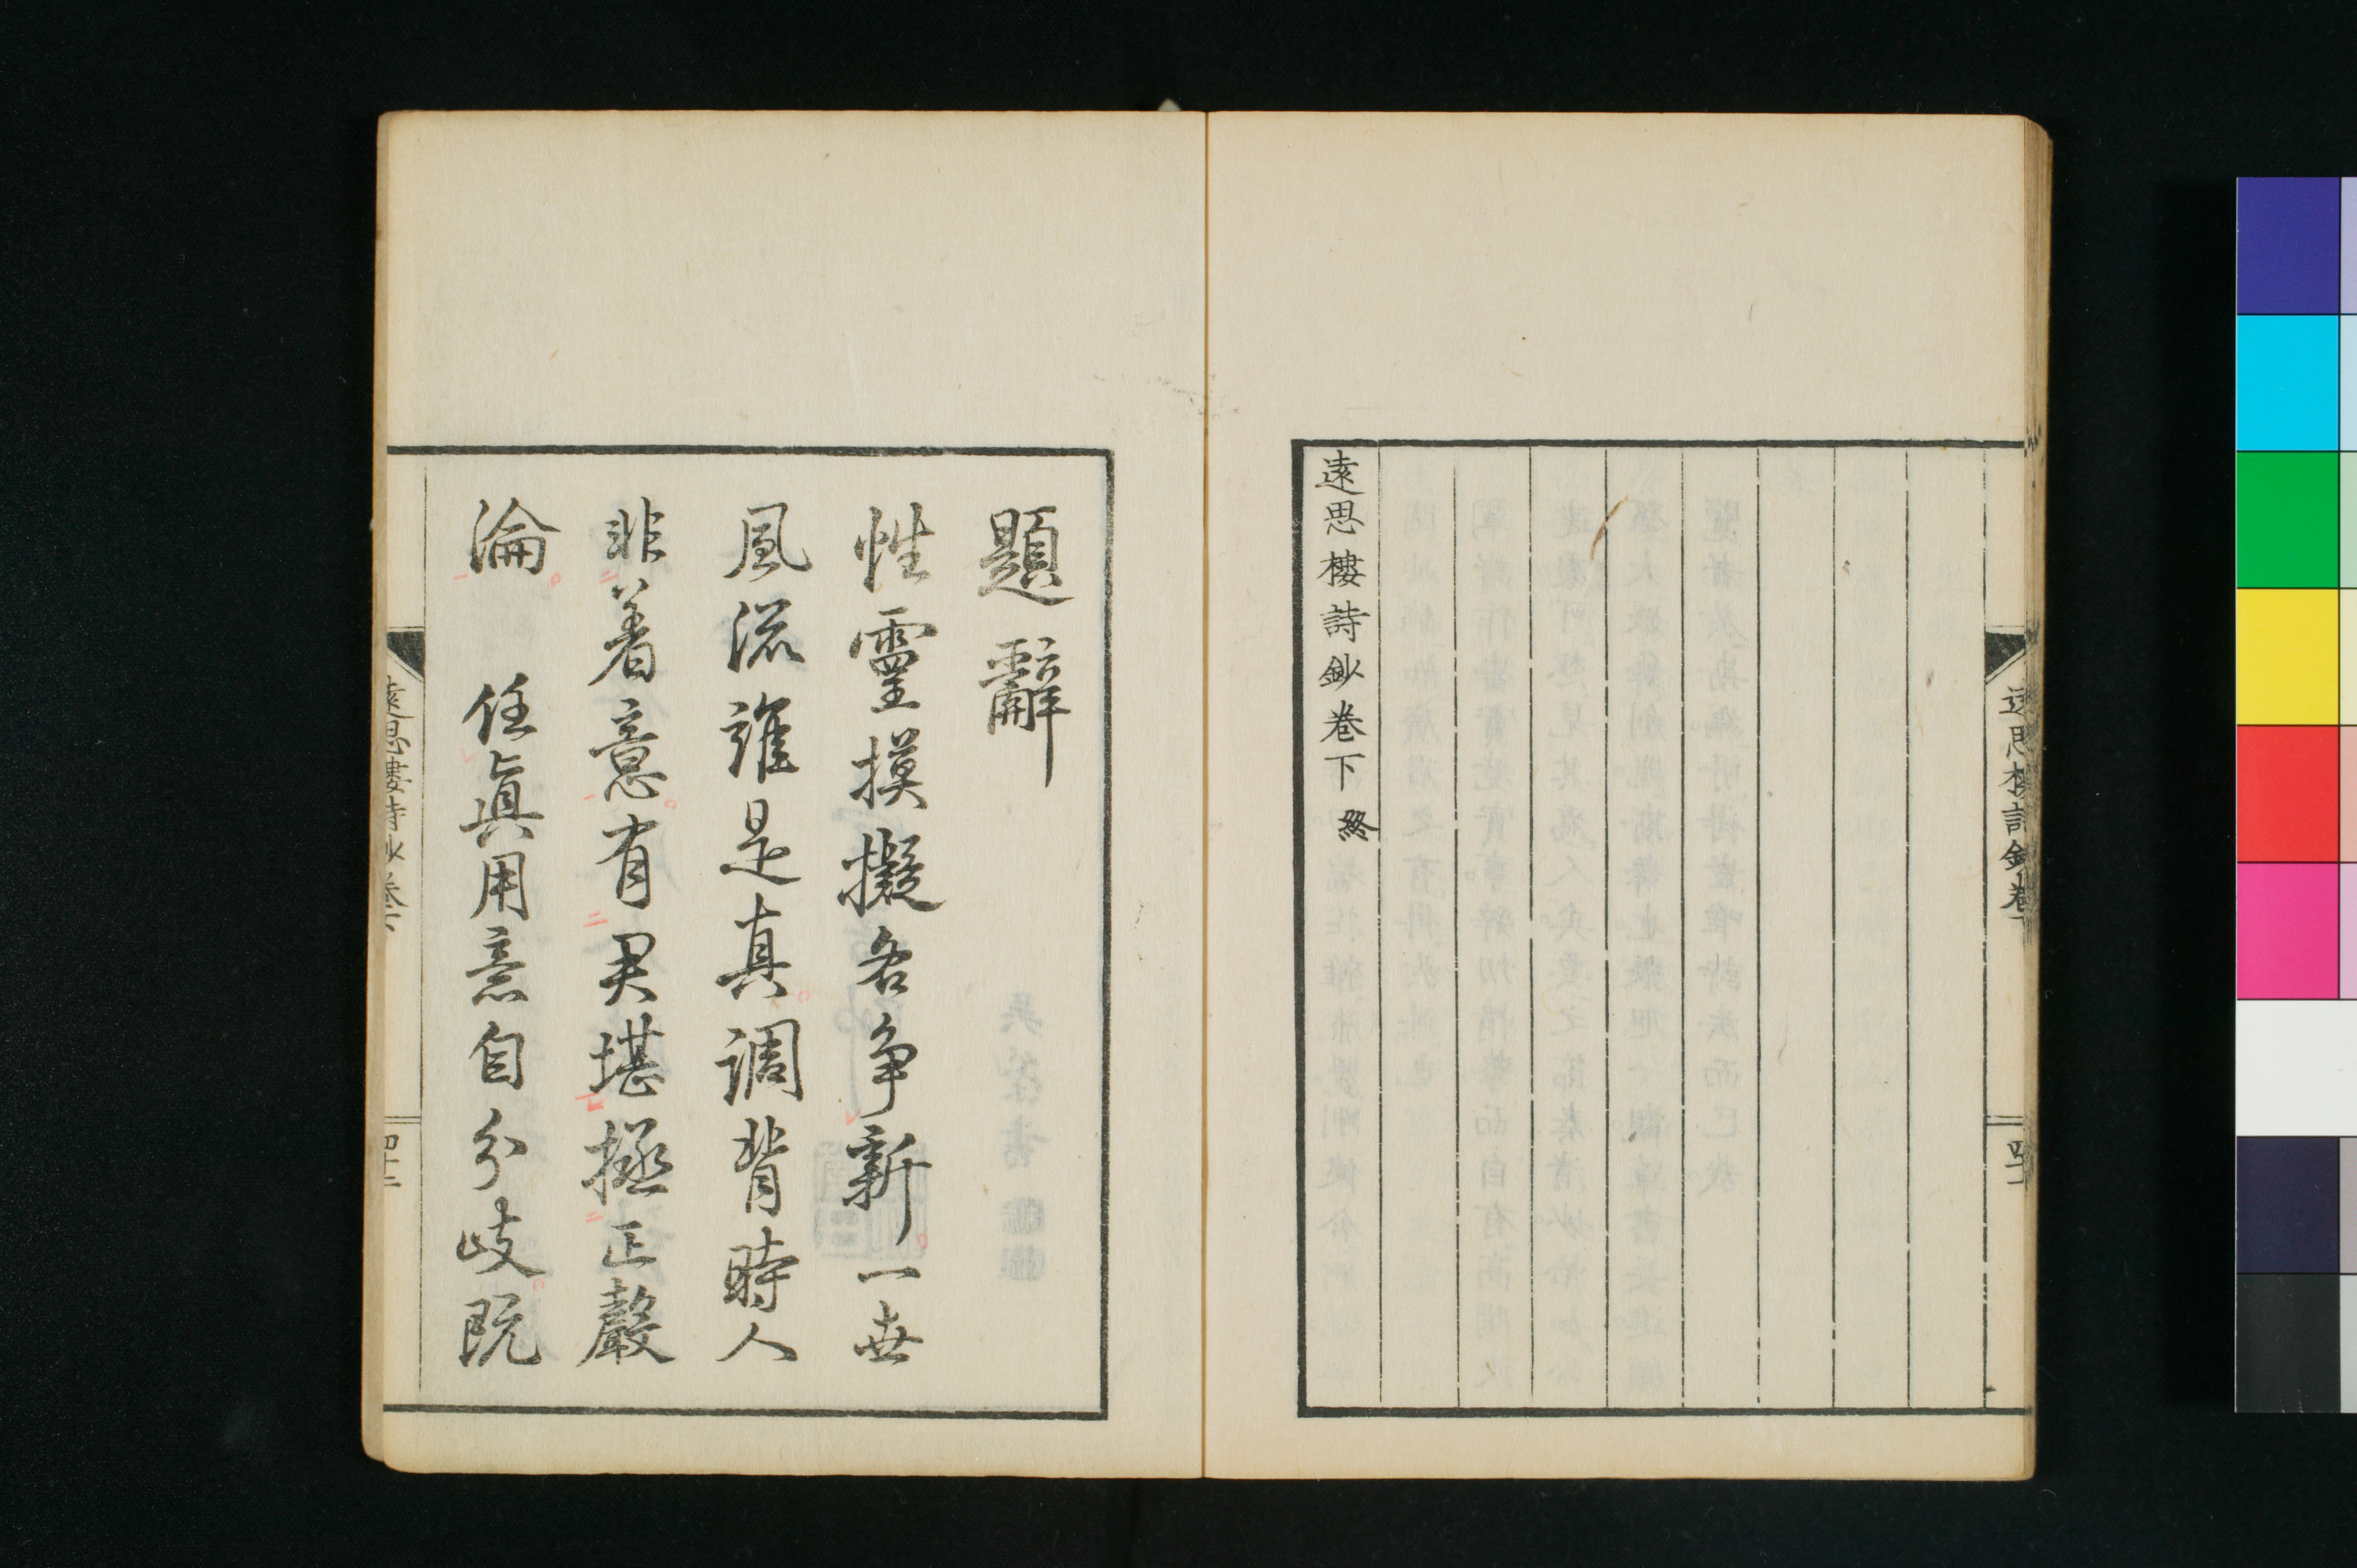 遠思樓詩鈔卷
四十一
遠思樓詩鈔卷下 終
題辭
性靈摸擬各爭新一世
風流誰是真調背時人
非着意有君堪拯正聲
淪 任眞用意自分岐既
遠思樓詩鈔卷下
四十二